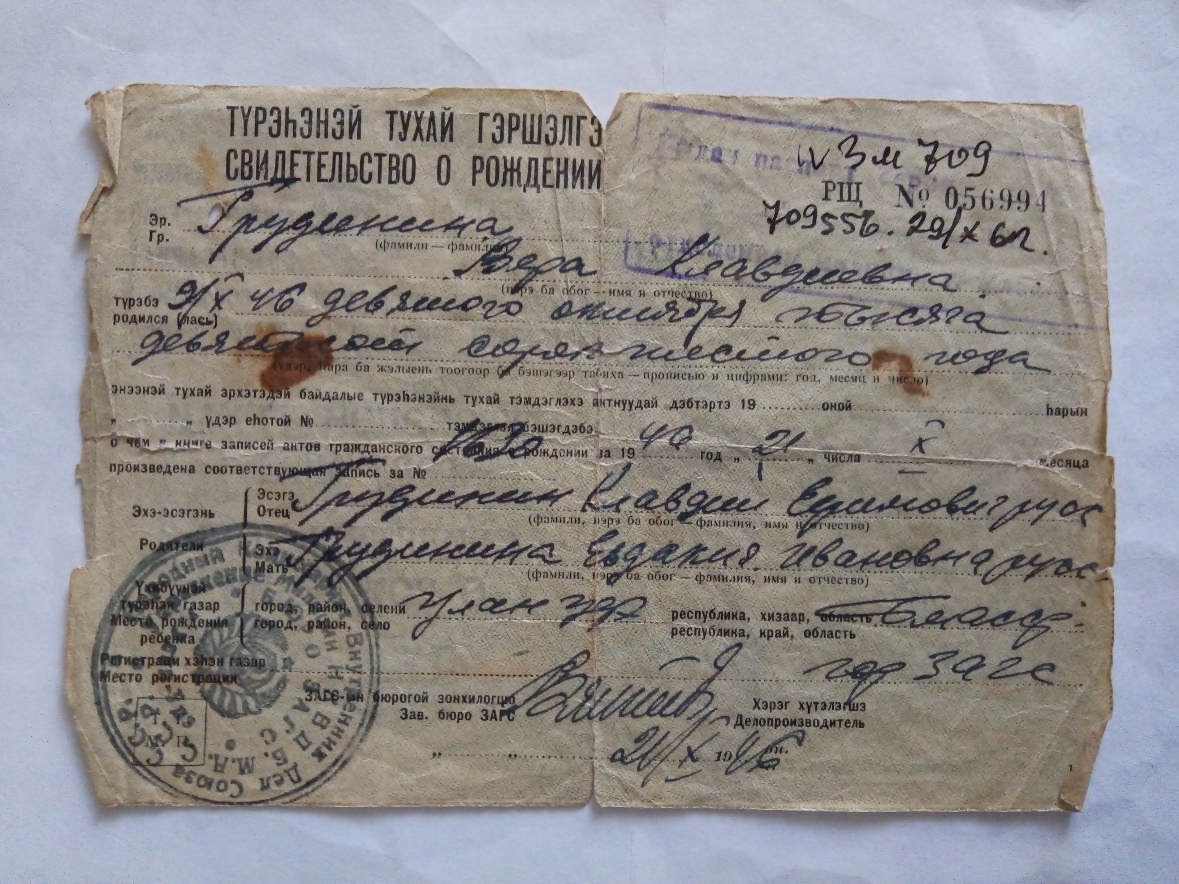 ТҮРЭҺЭНЭЙ ТУХАЙ ГЭРШЭЛГЭ
СВИДЕТЕЛЬСТВО О РОЖДЕНИИ
IV ЗМ 709
РЩ № 056994
709556. 29/X 61г.
Эр. Грудинина
Гр.
(фамили — фамилия)
Вера Клавдиевна
(нэрэ ба обог — имя и отчество)
түрэбэ 9/X 46 девятого октября тысяча
родился (лась)
девятьсот сорок шестого года
(үдэр, һара ба жэлыень тоогоор ба бэшэгээр табиха — прописью и цифрами: год, месяц и число)
энээнэй тухай эрхэтэдэй байдалые түрэһэнэйнь тухай тэмдэглэхэ актнуудай дэбтэртэ 19 оной һарын
„ „ үдэр еһотой № тэмдэглэл бэшэгдэбэ.
о чем в книге записей актов гражданского состояния о рождении за 19 46 год „ 21 „ числа X месяца
произведена соответствующая запись за № 1630
Эхэ-эсэгэнь
Эсэгэ Грудинин Клавдий Ефимович русс
Отец
(фамили, нэрэ ба обог — фамилия, имя и отчество)
Родители
Эхэ Грудинина Евдакия Ивановна русс.
Мать
(фамили, нэрэ ба обог — фамилия, имя и отчество)
Үхибүүнэй
түрэһэн газар
Место рождения
ребенка
город, район, селени Улан Удэ республика, хизаар, область Бмасср.
город, район, село республика, край, область
Регистраци хэһэн газар гор ЗАГС
Место регистрации
ЗАГС-ын бюрогой зонхилогшо
Зав. бюро ЗАГС
Хэрэг хүтэлэгшэ
Делопроизводитель
„ „ 21/X 1946 он.
Внутренних Дел Союза ССР